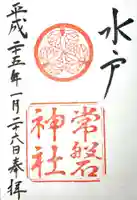 水戸
常磐
神社
平成二十五年一月二十八日奉拝